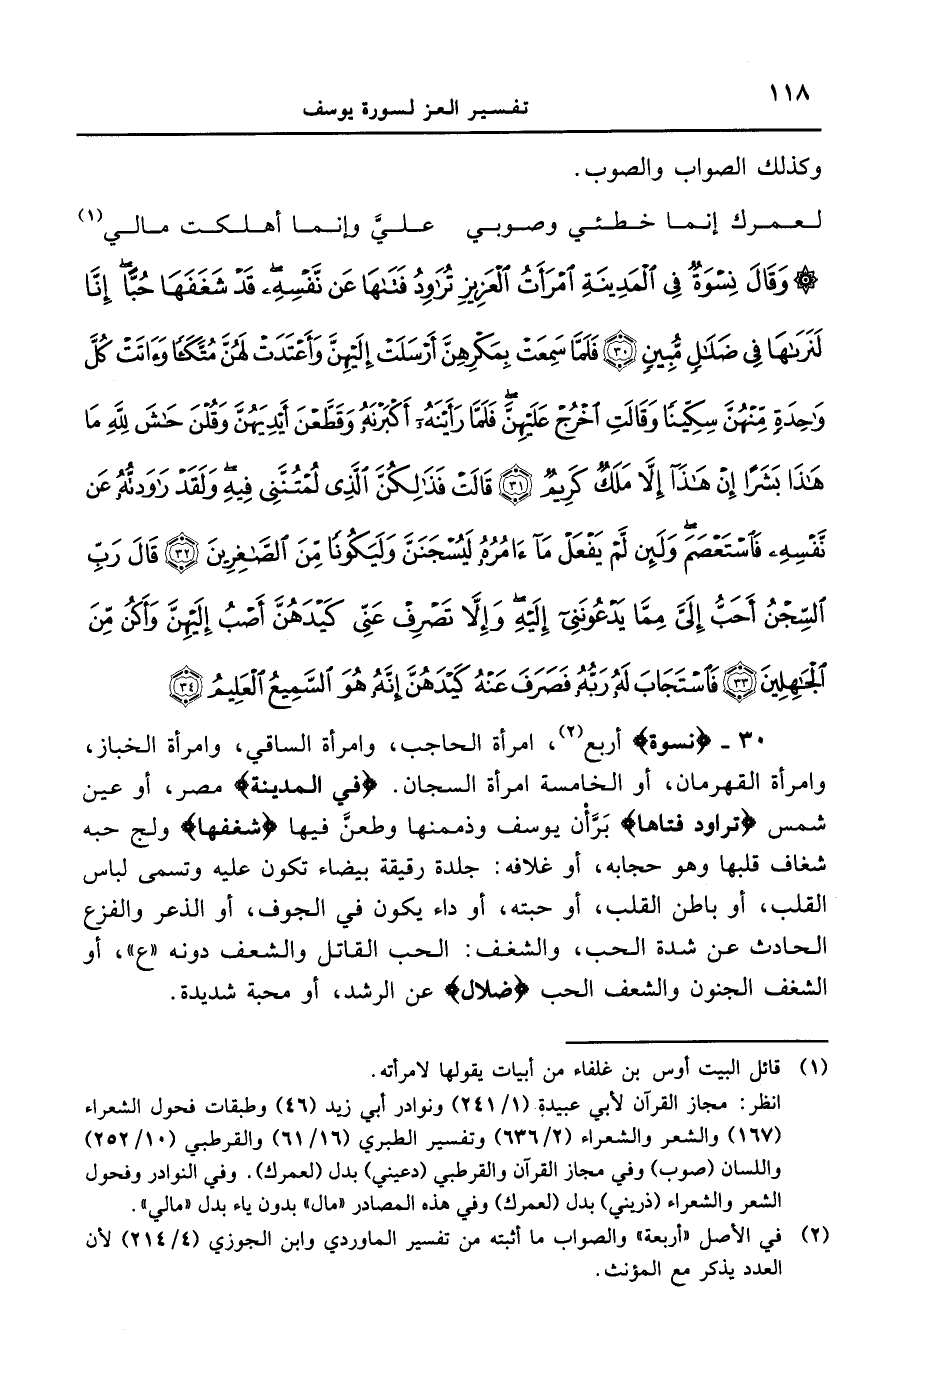 ١١٨
تفسير العز لسورة يوسف
وكذلك الصواب والصوب.
لعمرك إنما خطئي وصوبي عليَّ وإنما أهلكت مالي(١)
۞ وَقَالَ نِسْوَةٌ فِى ٱلْمَدِينَةِ ٱمْرَأَتُ ٱلْعَزِيزِ تُرَٰوِدُ فَتَىٰهَا عَن نَّفْسِهِۦ ۖ قَدْ شَغَفَهَا حُبًّا ۖ إِنَّا
لَنَرَىٰهَا فِى ضَلَٰلٍ مُّبِينٍ ﴿٣٠﴾ فَلَمَّا سَمِعَتْ بِمَكْرِهِنَّ أَرْسَلَتْ إِلَيْهِنَّ وَأَعْتَدَتْ لَهُنَّ مُتَّكَـًٔا وَءَاتَتْ كُلَّ
وَٰحِدَةٍ مِّنْهُنَّ سِكِّينًا وَقَالَتِ ٱخْرُجْ عَلَيْهِنَّ ۖ فَلَمَّا رَأَيْنَهُۥٓ أَكْبَرْنَهُۥ وَقَطَّعْنَ أَيْدِيَهُنَّ وَقُلْنَ حَٰشَ لِلَّهِ مَا
هَٰذَا بَشَرًا إِنْ هَٰذَآ إِلَّا مَلَكٌ كَرِيمٌ ﴿٣١﴾ قَالَتْ فَذَٰلِكُنَّ ٱلَّذِى لُمْتُنَّنِى فِيهِ ۖ وَلَقَدْ رَٰوَدتُّهُۥ عَن
نَّفْسِهِۦ فَٱسْتَعْصَمَ ۖ وَلَئِن لَّمْ يَفْعَلْ مَآ ءَامُرُهُۥ لَيُسْجَنَنَّ وَلَيَكُونًا مِّنَ ٱلصَّٰغِرِينَ ﴿٣٢﴾ قَالَ رَبِّ
ٱلسِّجْنُ أَحَبُّ إِلَىَّ مِمَّا يَدْعُونَنِىٓ إِلَيْهِ ۖ وَإِلَّا تَصْرِفْ عَنِّى كَيْدَهُنَّ أَصْبُ إِلَيْهِنَّ وَأَكُن مِّنَ
ٱلْجَٰهِلِينَ ﴿٣٣﴾ فَٱسْتَجَابَ لَهُۥ رَبُّهُۥ فَصَرَفَ عَنْهُ كَيْدَهُنَّ إِنَّهُۥ هُوَ ٱلسَّمِيعُ ٱلْعَلِيمُ ﴿٣٤﴾
٣٠ ـ ﴿نسوة﴾ أربع(٢)، امرأة الحاجب، وامرأة الساقي، وامرأة الخباز،
وامرأة القهرمان، أو الخامسة امرأة السجان. ﴿في المدينة﴾ مصر، أو عين
شمس ﴿تراود فتاها﴾ بَرَّأْن يوسف وذممنها وطعنَّ فيها ﴿شغفها﴾ ولج حبه
شغاف قلبها وهو حجابه، أو غلافه: جلدة رقيقة بيضاء تكون عليه وتسمى لباس
القلب، أو باطن القلب، أو حبته، أو داء يكون في الجوف، أو الذعر والفزع
الحادث عن شدة الحب، والشغف: الحب القاتل والشعف دونه «ع»، أو
الشغف الجنون والشعف الحب ﴿ضلال﴾ عن الرشد، أو محبة شديدة.
(١) قائل البيت أوس بن غلفاء من أبيات يقولها لامرأته.
انظر: مجاز القرآن لأبي عبيدة (١/ ٢٤١) ونوادر أبي زيد (٤٦) وطبقات فحول الشعراء
(١٦٧) والشعر والشعراء (٢/ ٦٣٦) وتفسير الطبري (١٦/ ٦١) والقرطبي (١٠/ ٢٥٢)
واللسان (صوب) وفي مجاز القرآن والقرطبي (دعيني) بدل (لعمرك). وفي النوادر وفحول
الشعر والشعراء (ذريني) بدل (لعمرك) وفي هذه المصادر «مال» بدون ياء بدل «مالي».
(٢) في الأصل «أربعة» والصواب ما أثبته من تفسير الماوردي وابن الجوزي (٤/ ٢١٤) لأن
العدد يذكر مع المؤنث.